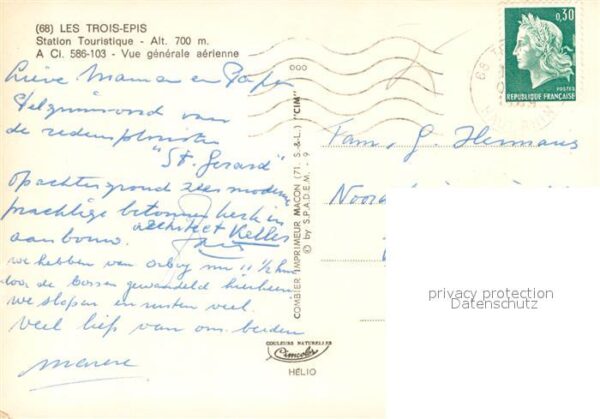 (68) LES TROIS-EPIS
Station Touristique - Alt. 700 m.
A Ci. 586-103 - Vue générale aérienne
Lieve Maman en Papa
Pelgrimsoord van
de redemptoristen
"St. Gerard"
op achtergrond zeer moderne
prachtige betonnen kerk in
aanbouw. architect Keller
we hebben van Orbey nu 1 1/2 huur
door de bossen gewandeld hierheen
we slapen en rusten veel.
Veel liefs van ons beiden
COMBIER IMPRIMEUR MACON (71. S.-&-L.) "CIM"
© by S.P.A.D.E.M. - 9
COULEURS NATURELLES
Cimcolor
HÉLIO
0,30
POSTES
REPUBLIQUE FRANÇAISE
68
Fam. G. Hermans
Noord
privacy protection
Datenschutz